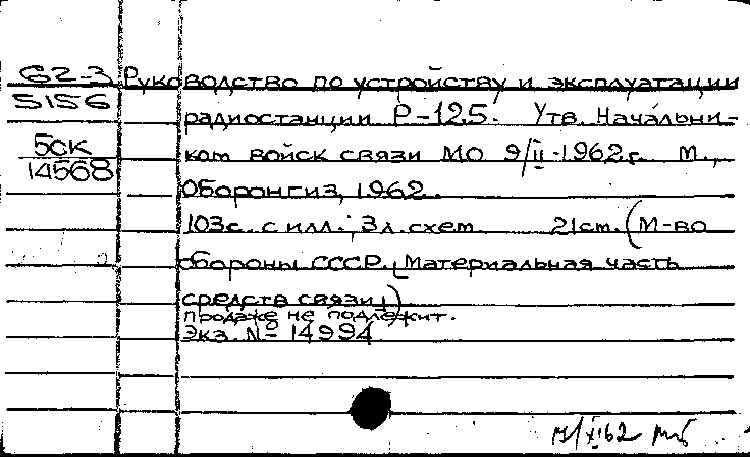 62-3 Руководство по устройству и эксплуатации
5156
радиостанции Р-125. Утв. Начальни-
5ск
ком войск связи МО 9/II-1962г. М.,
14568
Оборонгиз, 1962.
103с. с илл.; 3л. схем. 21см. (М-во
обороны СССР. [Материальная часть
средств связи])
продаже не подлежит.
Экз. № 14994
/XI62